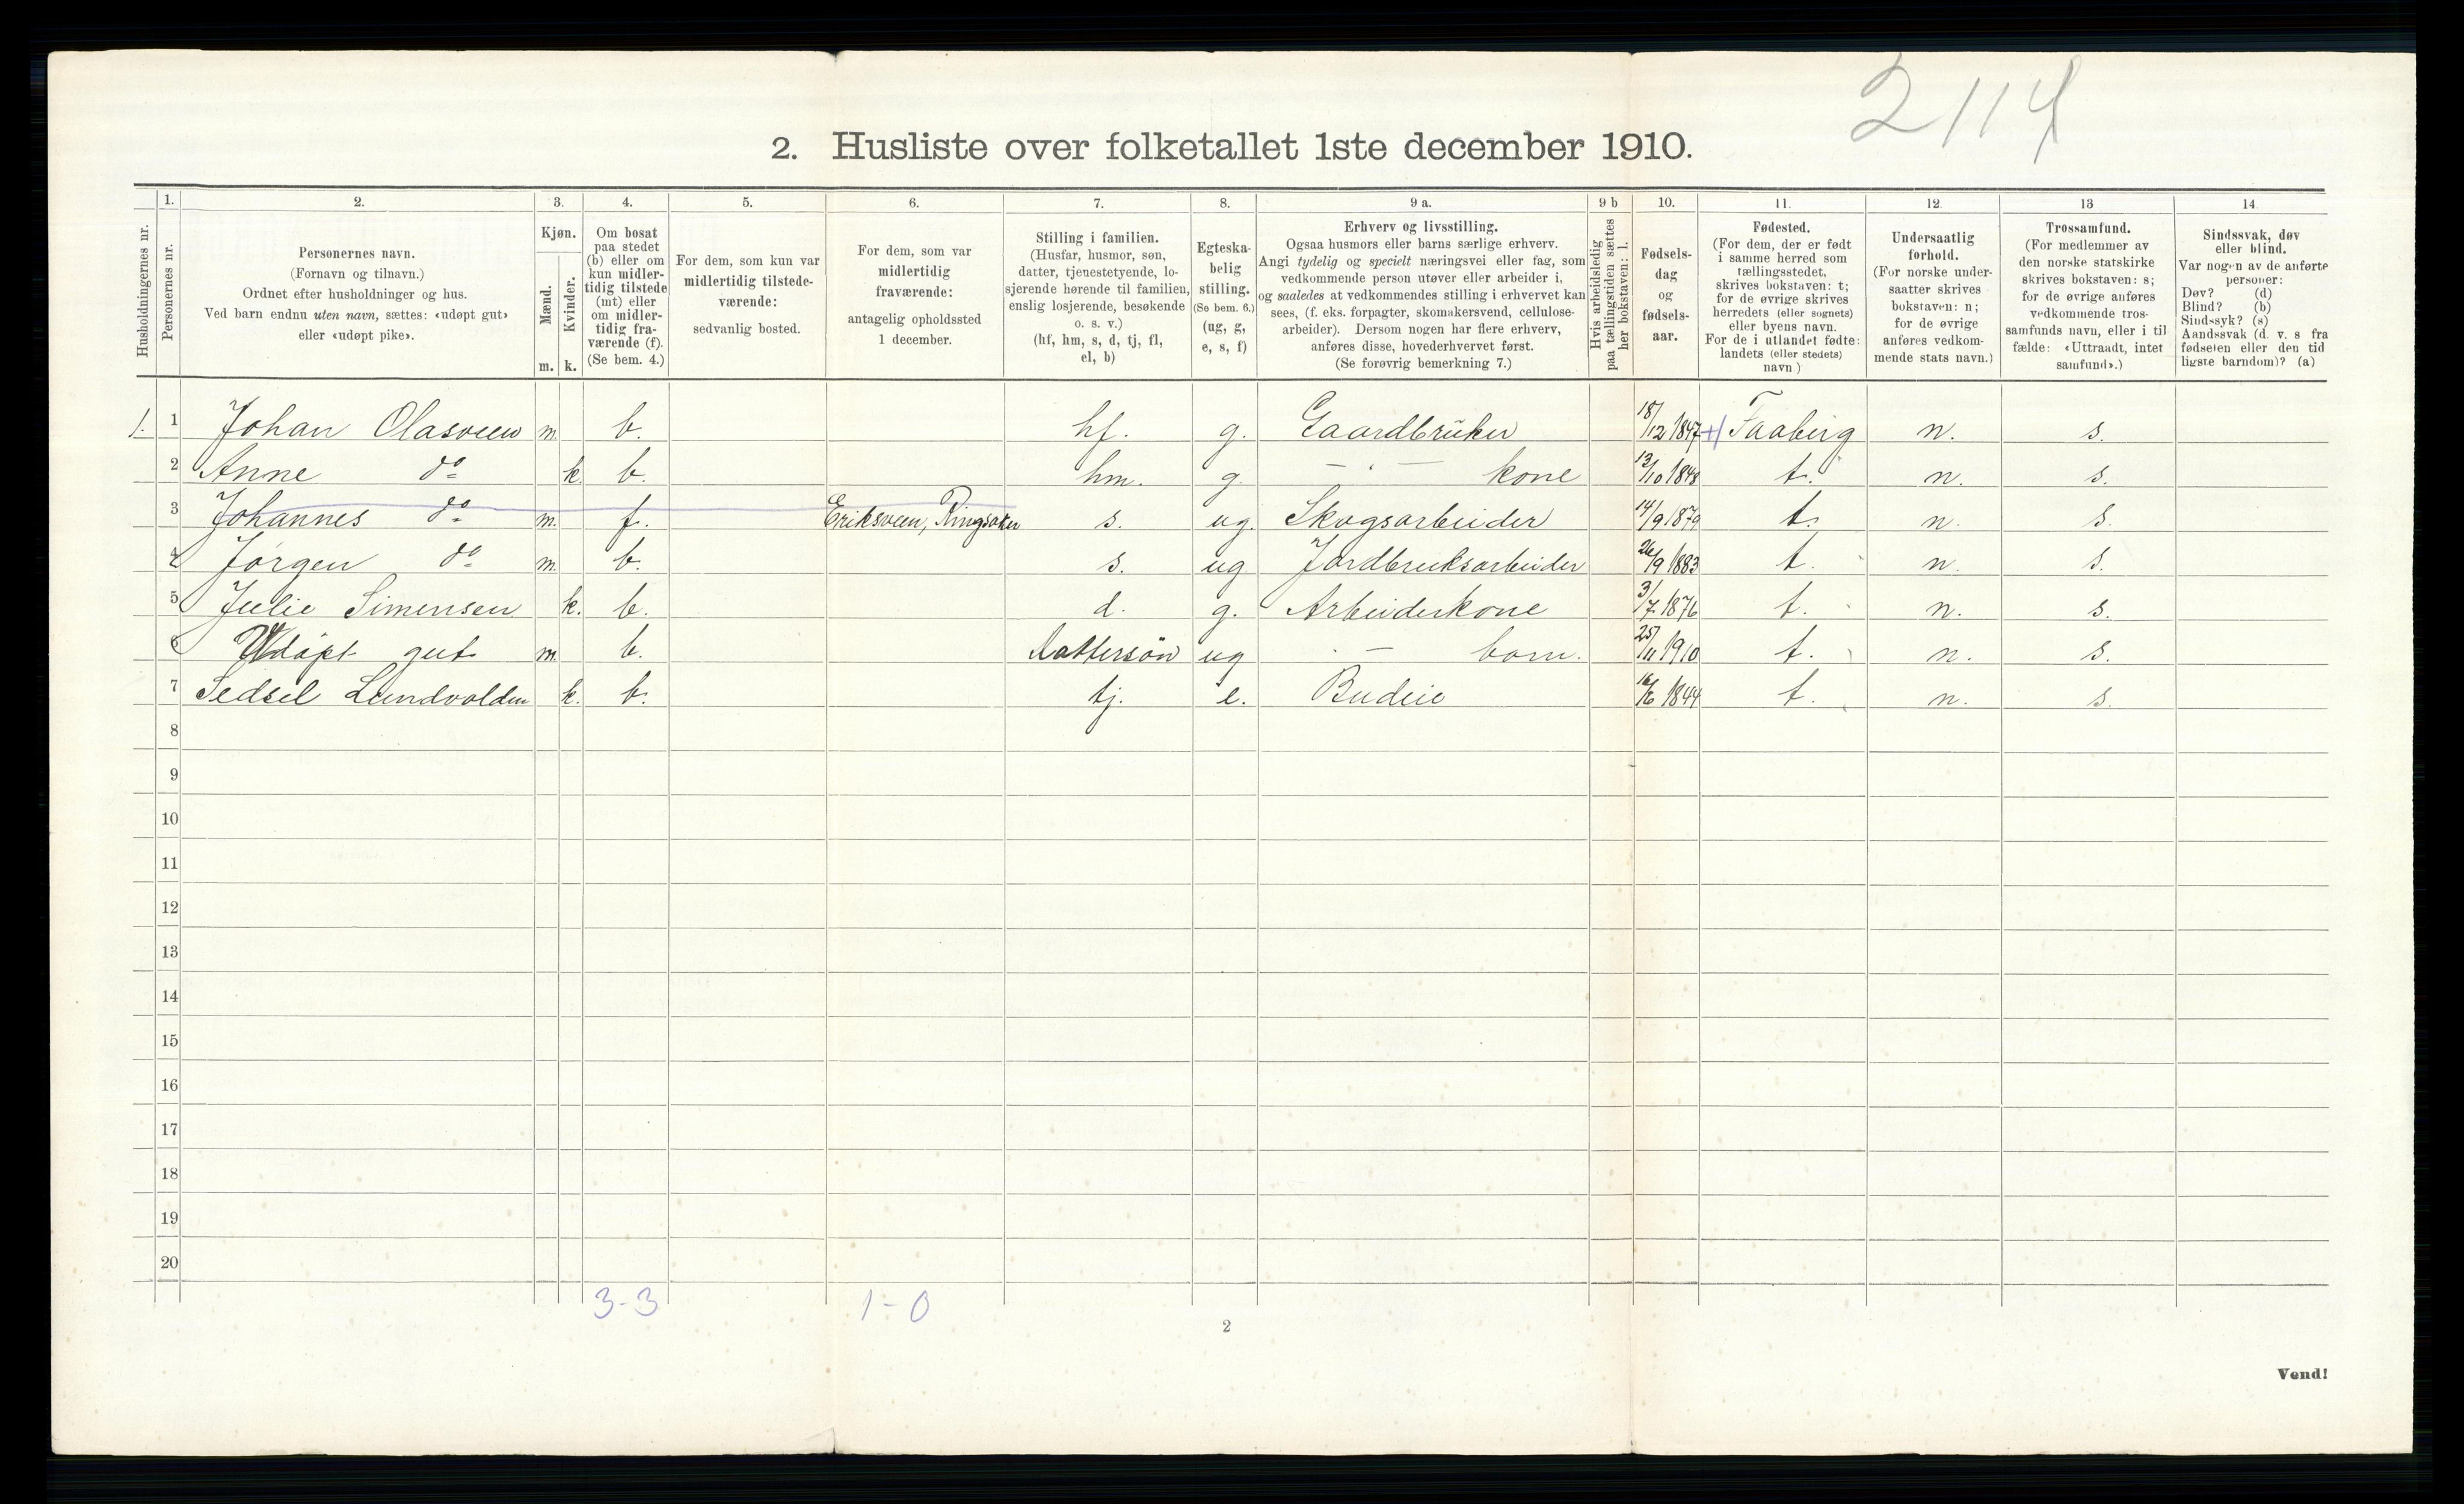 2114
2. Husliste over folketallet 1ste december 1910.
1. 2. 3. 4. 5. 6. 7. 8. 9 a. 9 b 10. 11. 12. 13 14
Husholdningernes nr.
Personernes nr.
Personernes navn.
(Fornavn og tilnavn.)
Ordnet efter husholdninger og hus.
Ved barn endnu uten navn, sættes: «udøpt gut»
eller «udøpt pike».
Kjøn.
Mænd.
Kvinder.
m. k.
Om bosat
paa stedet
(b) eller om
kun midler-
tidig tilstede
(mt) eller
om midler-
tidig fra-
værende (f).
(Se bem. 4.)
For dem, som kun var
midlertidig tilstede-
værende:
sedvanlig bosted.
For dem, som var
midlertidig
fraværende:
antagelig opholdssted
1 december.
Stilling i familien.
(Husfar, husmor, søn,
datter, tjenestetyende, lo-
sjerende hørende til familien,
enslig losjerende, besøkende
o. s. v.)
(hf, hm, s, d, tj, fl,
el, b)
Egteska-
belig
stilling.
(Se bem. 6.)
(ug, g,
e, s, f)
Erhverv og livsstilling.
Ogsaa husmors eller barns særlige erhverv.
Angi tydelig og specielt næringsvei eller fag, som
vedkommende person utøver eller arbeider i,
og saaledes at vedkommendes stilling i erhvervet kan
sees, (f. eks. forpagter, skomakersvend, cellulose-
arbeider). Dersom nogen har flere erhverv,
anføres disse, hovederhvervet først.
(Se forøvrig bemerkning 7.)
Hvis arbeidsledig
paa tællingstiden sættes
her bokstaven: l.
Fødsels-
dag
og
fødsels-
aar.
Fødested.
(For dem, der er født
i samme herred som
tællingsstedet,
skrives bokstaven: t;
for de øvrige skrives
herredets (eller sognets)
eller byens navn.
For de i utlandet fødte:
landets (eller stedets)
navn.)
Undersaatlig
forhold.
(For norske under-
saatter skrives
bokstaven: n;
for de øvrige
anføres vedkom-
mende stats navn.)
Trossamfund.
(For medlemmer av
den norske statskirke
skrives bokstaven: s;
for de øvrige anføres
vedkommende tros-
samfunds navn, eller i til
fælde: «Uttraadt, intet
samfund».)
Sindssvak, døv
eller blind.
Var nogen av de anførte
personer:
Døv? (d)
Blind? (b)
Sindssyk? (s)
Aandssvak (d. v. s fra
fødselen eller den tid
ligste barndom)? (a)
1. 1 Johan Olasveen m. b. hf. g. Gaardbruker 18/12 1847 +| Faaberg n. s.
2 Anne do k. b. hm. g. — " — kone 13/10 1848 t. n. s.
3 Johannes do m. f. Eriksveen, Ringsaker s. ug. Skogsarbeider 14/9 1879 t. n. s.
4 Jørgen do m. b. s. ug Jordbruksarbeider 26/9 1883 t. n. s.
5 Julie Simensen k. b. d. g. Arbeiderkone 3/7 1876 t. n. s.
6 Udøpt gut m. b. dattersøn ug — barn. 25/11 1910 t. n. s.
7 Sedsel Lundvolden k. b. tj. e. Budeie 16/6 1844 t. n. s.
8
9
10
11
12
13
14
15
16
17
18
19
20
3-3 1-0
2
Vend!